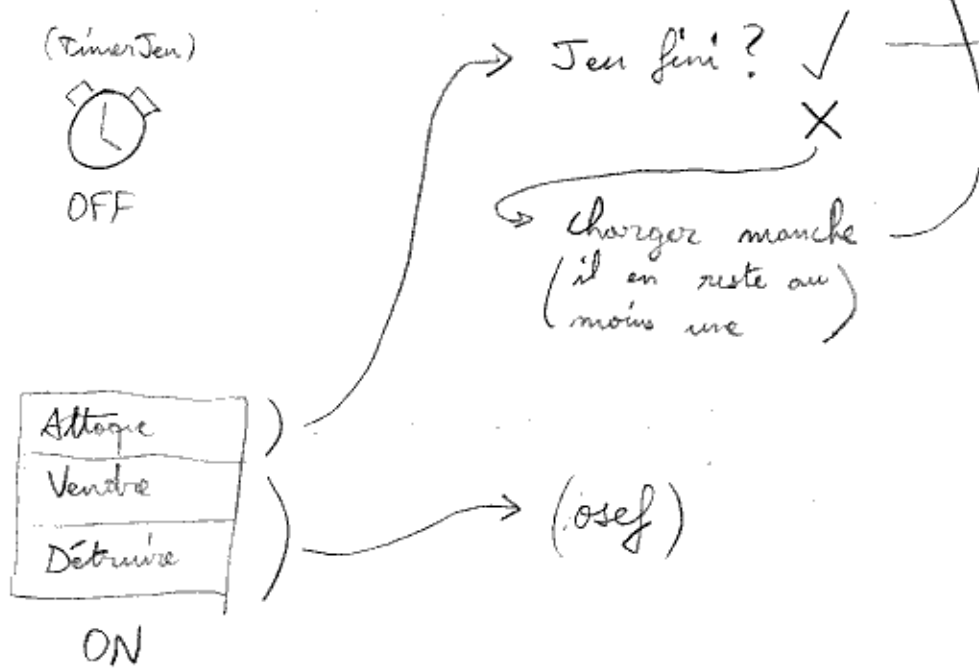 (TimerJeu)
OFF
Jeu fini ?
charger manche
(il en reste au
moins une)
Attaque
Vendre
Détruire
ON
(osef)